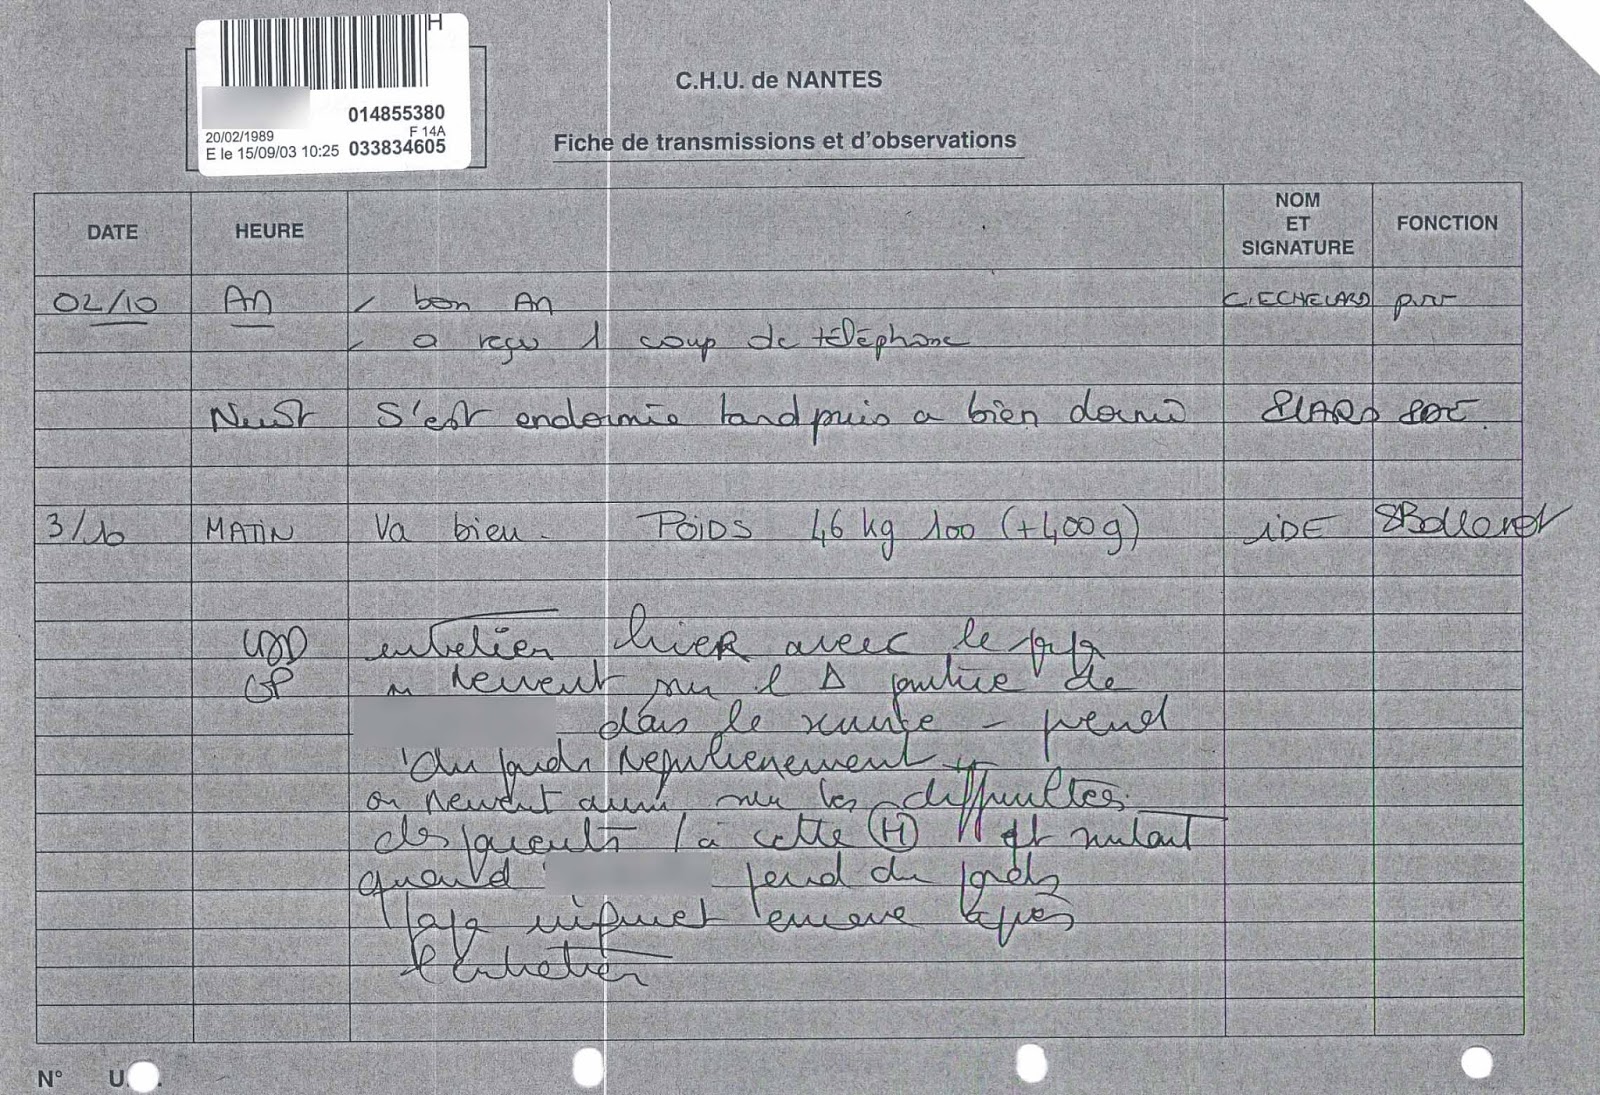 H
014855380
20/02/1989 F 14A
E le 15/09/03 10:25 033834605
C.H.U. de NANTES
Fiche de transmissions et d'observations
DATE HEURE NOM ET SIGNATURE FONCTION
02/10 AM / bon AM C. ECHELARD puer
/ a reçu 1 coup de téléphone
Nuit S'est endormie tard puis a bien dormi
3/10 MATIN Va bien. POIDS 46 kg 100 (+400g) IDE
entretien hier avec le papa
on revient sur l Δ de
dans le - prend
du poids régulièrement
on revient aussi sur les difficultés
des parents / à cette (H) et surtout
quand perd du poids
Papa encore après
l'entretien
N° U.